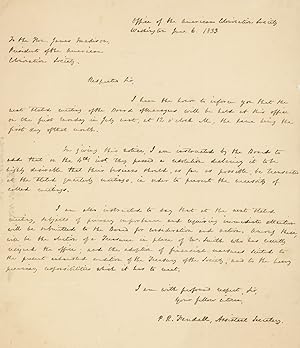 Office of the American Colonization Society
Washington June 6. 1833
To the Hon. James Madison,
President of the American
Colonization Society.
Respected Sir,
I have the honor to inform you that the
next stated meeting of the Board of Managers will be held at this office
on the first Monday in July next, at 12 o'clock M., the same being the
first day of that month.
In giving this notice, I am instructed by the Board to
add that on the 4th inst they passed a resolution declaring it to be
highly desirable that their business should, as far as possible be transacted
at the stated quarterly meetings, in order to prevent the necessity of
called meetings.
I am also instructed to say that at the next stated
meeting, subjects of primary importance and requiring immediate attention
will be submitted to the Board for consideration and action. Among these
will be the election of a Treasurer in place of Mr. Smith who has recently
resigned the office; and the adoption of financial measures suited to
the present embarrassed condition of the Treasury of the Society, and to the heavy
pecuniary responsibilities which it has to meet.
I am with profound respect, Sir,
Your fellow citizen,
P. R. Fendall, Assistant Secretary.